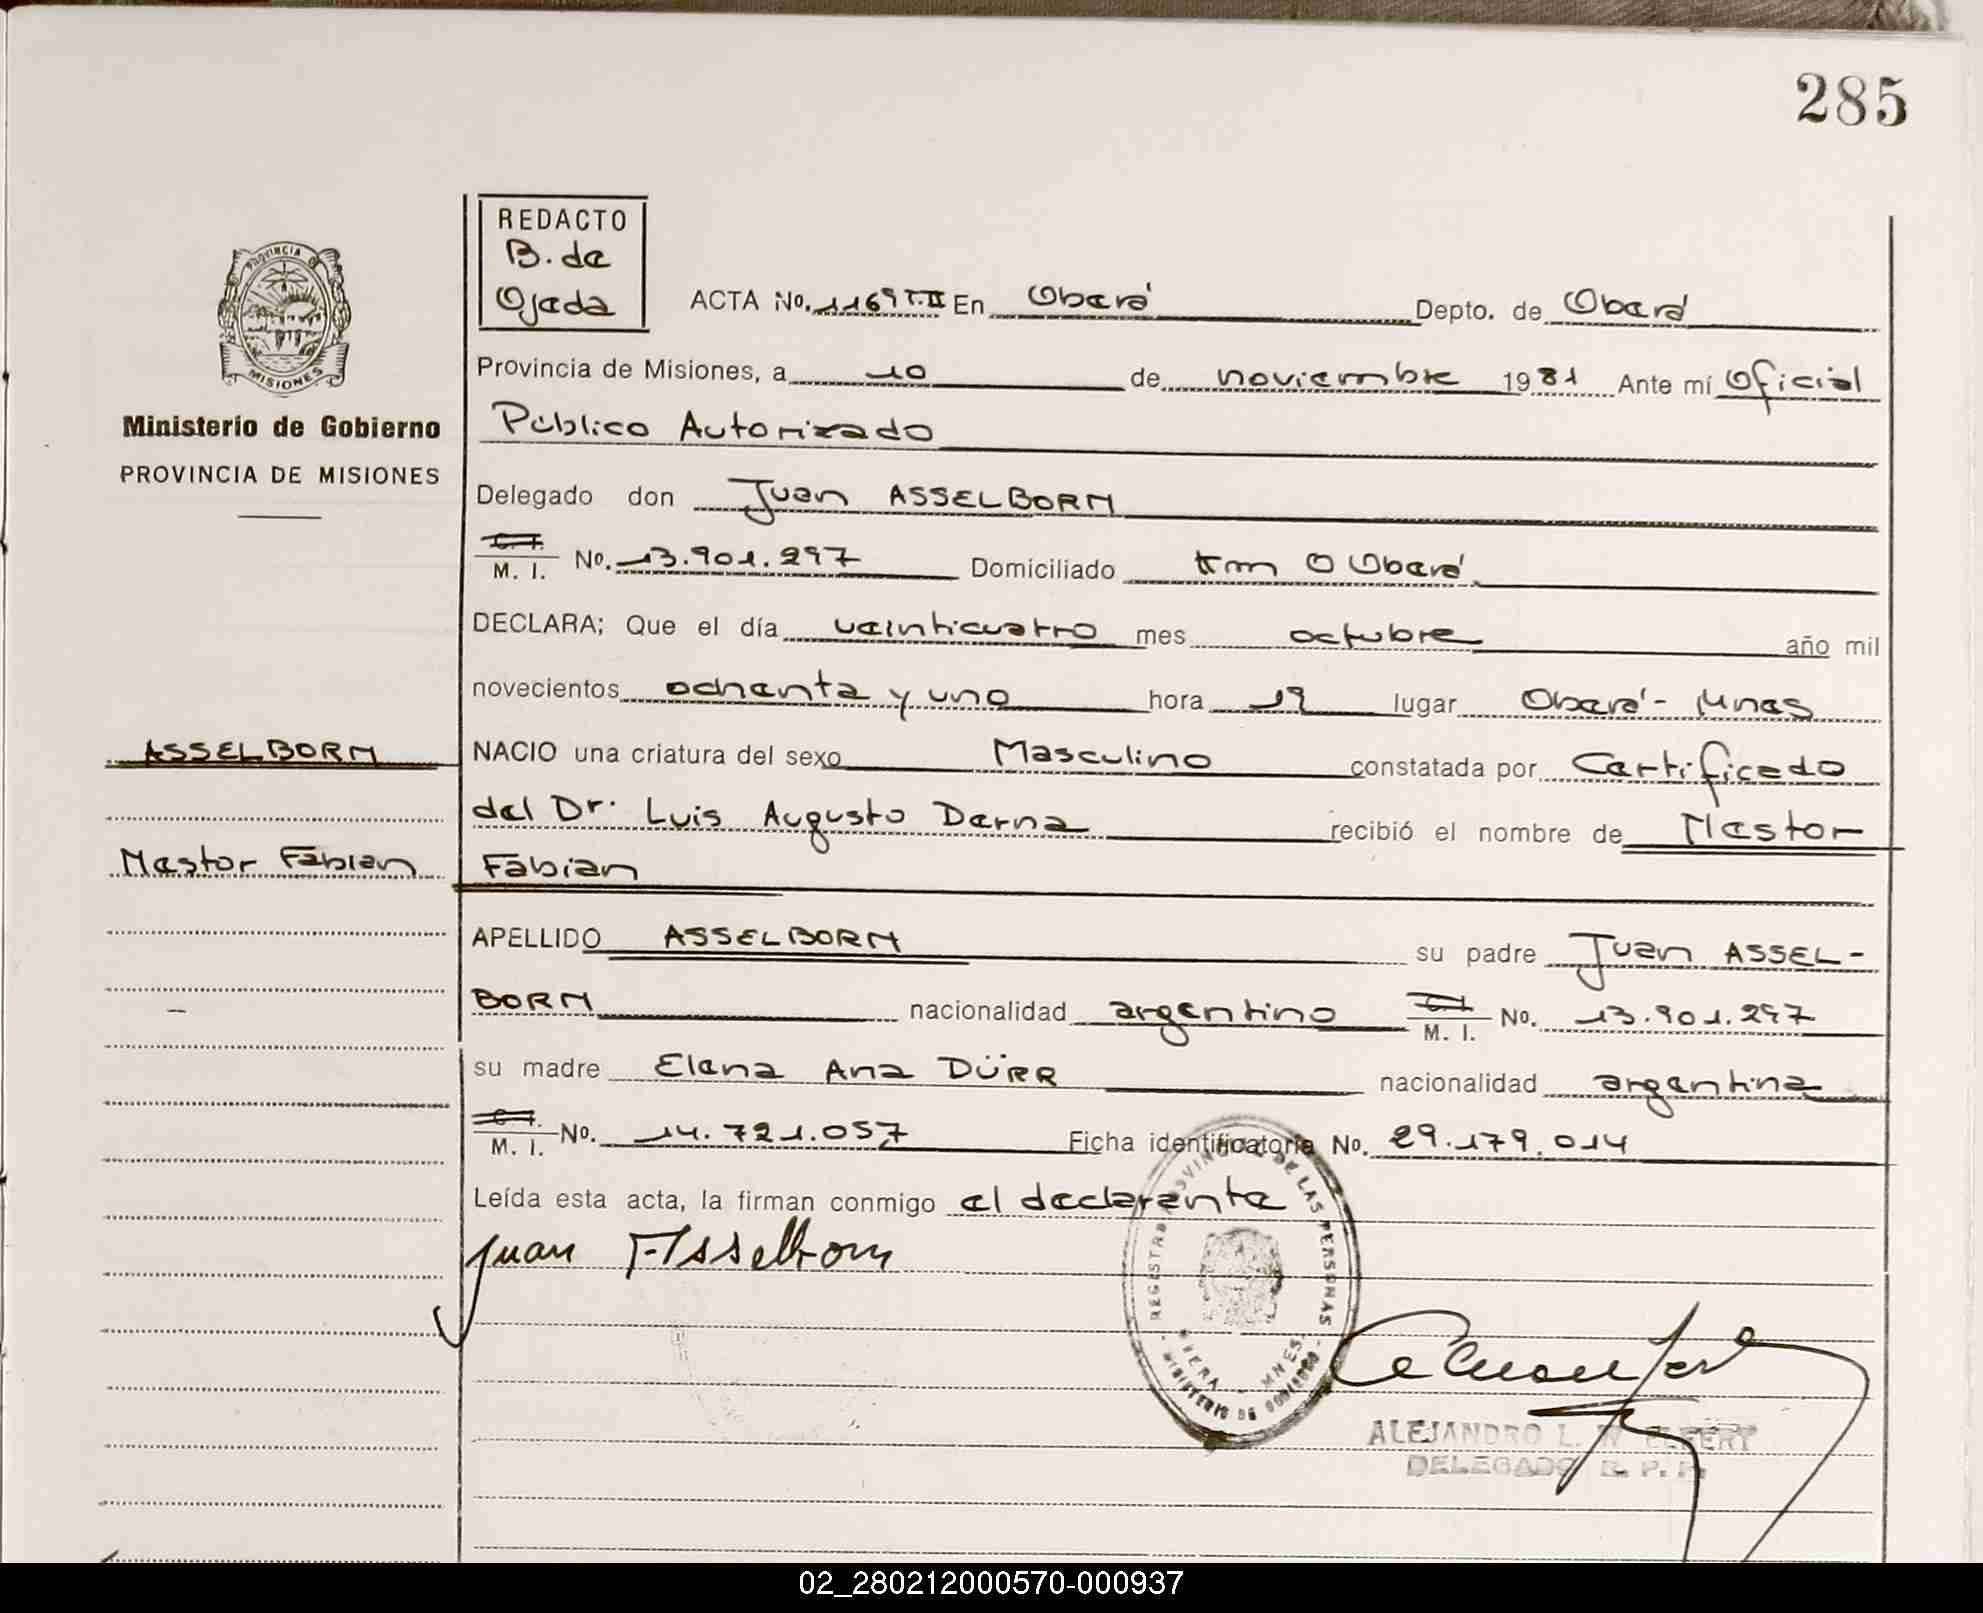 285
REDACTO
B. de
Ojeda
ACTA No. 1169 T.II En Oberá Depto. de Oberá
Provincia de Misiones, a 10 de noviembre 1981 Ante mí Oficial
Público Autorizado
PROVINCIA DE
MISIONES
Ministerio de Gobierno
PROVINCIA DE MISIONES
Delegado don Juan ASSELBORN
M. I. No. 13.901.297 Domiciliado km 0 Oberá
DECLARA; Que el día veinticuatro mes octubre año mil
novecientos ochenta y uno hora 19 lugar Oberá - Mnes
ASSELBORN
NACIO una criatura del sexo Masculino constatada por Certificado
del Dr. Luis Augusto Derna recibió el nombre de Nestor
Nestor Fabian
Fabian
APELLIDO ASSELBORN su padre Juan ASSEL-
BORN nacionalidad argentino M. I. No. 13.901.297
su madre Elena Ana DÜRR nacionalidad argentina
M. I. No. 14.721.057 Ficha identificatoria No. 29.179.014
Leída esta acta, la firman conmigo el declarante
Juan Asselborn
REGISTRO PROVINCIAL DE LAS PERSONAS
MINISTERIO DE GOBIERNO
OBERA - MNES.
ALEJANDRO L. W
DELEGADO R. P. P.
02_280212000570-000937